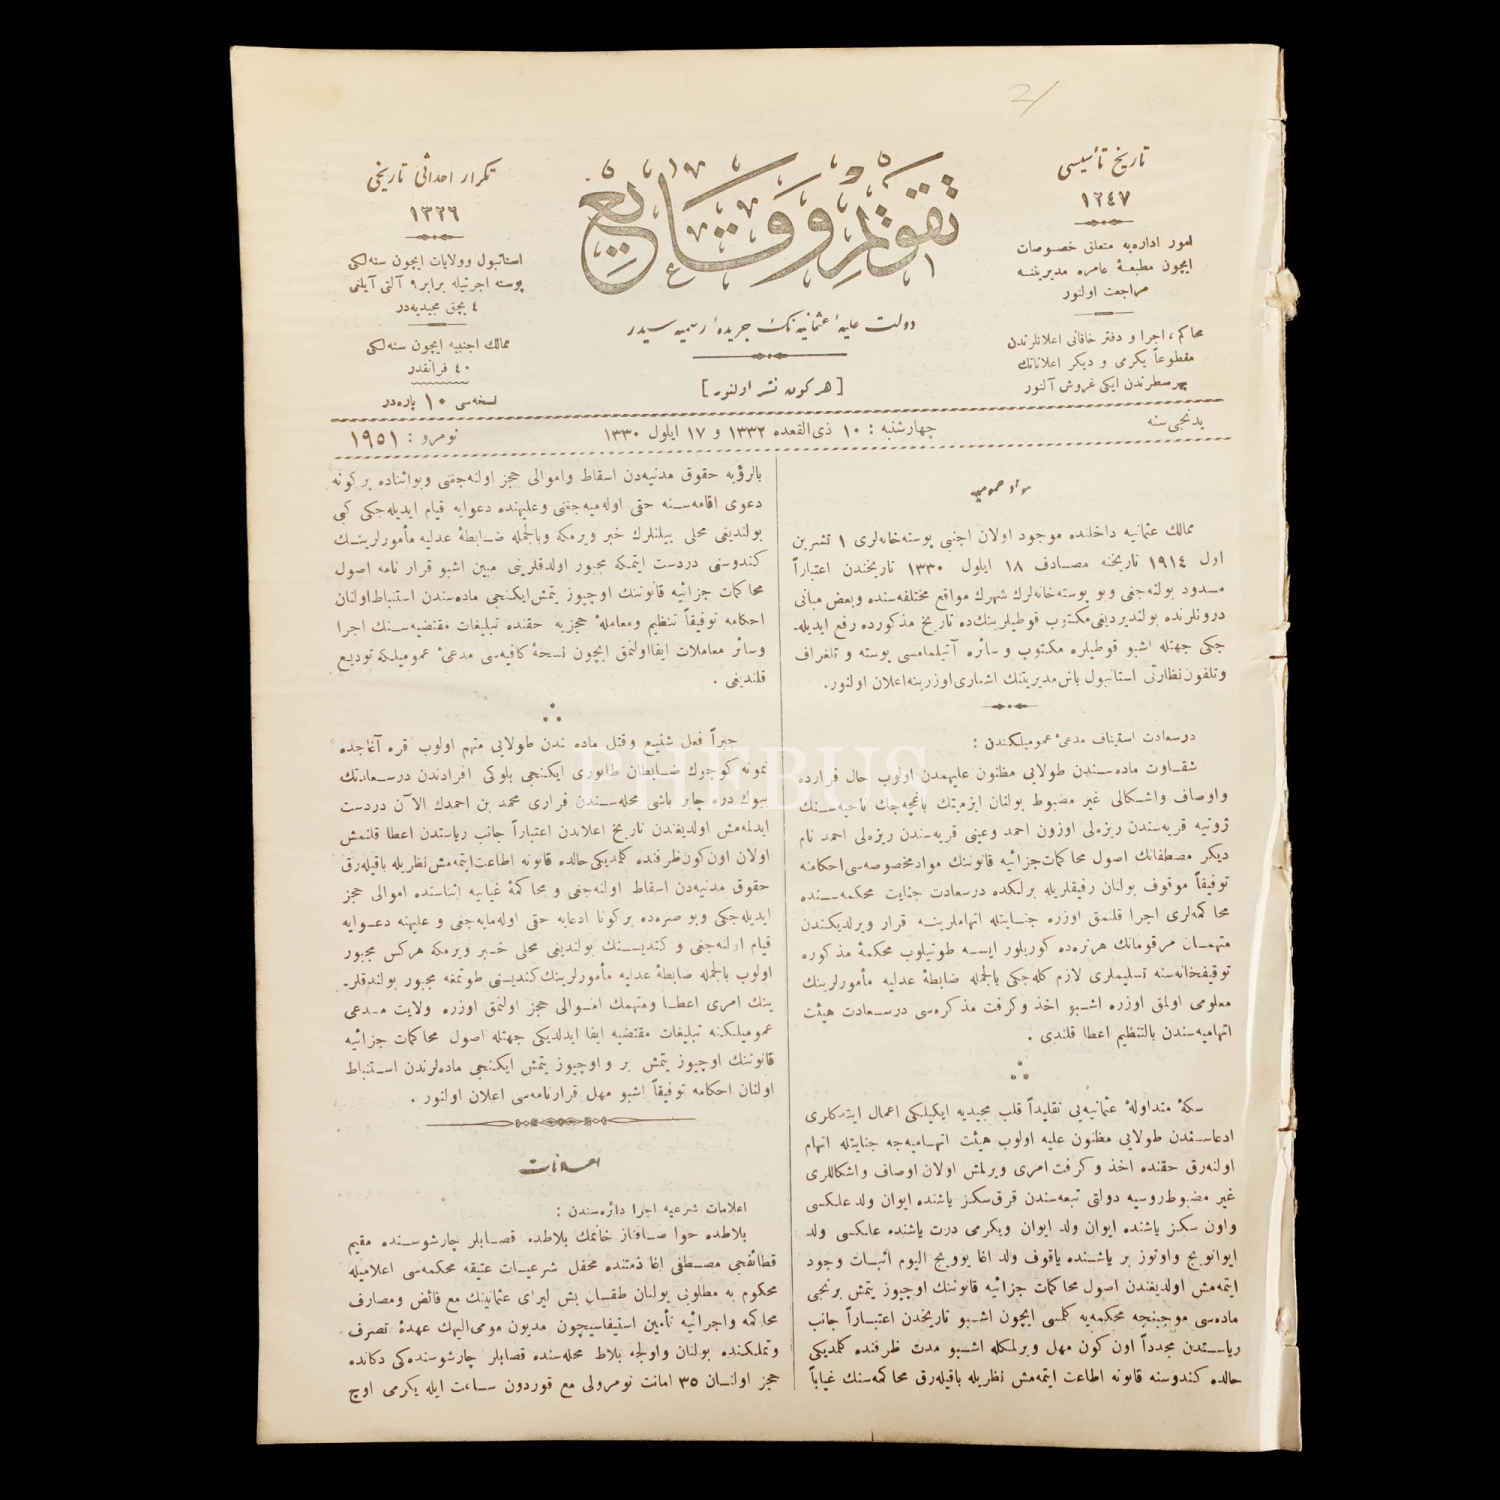 2/
تاریخ تأسیسی
١٢٤٧
امور اداره‌یه متعلق خصوصات
ایچون مطبعهٔ عامره مدیریتنـه
مراجعت اولنور
محاکم، اجرا و دفتر خاقانی اعلانلرندن
مقطوعاً یکرمی و دیکر اعلاناتك
بهر سطرندن ایکی غروش آلنور
تقویم وقایع
دولت علیهٔ عثمانیه نك جریدهٔ رسمیه سیدر
[هر كون نشر اولنور]
تکرار احداثی تاریخی
١٣٢٦
استانبول وولایات ایچون سنه‌لکی
پوسته اجرتیله برابر ٩ آلتی آیلغی
٤ بچق مجیدیه‌در
ممالك اجنبیه ایچون سنه‌لکی
٤٠ فرانقدر
نسخه‌سی ١٠ پاره‌در
یدنجی سنه
چهارشنبه : ١٠ ذی‌القعده ١٣٣٢ و ١٧ ایلول ١٣٣٠
نومرو : ١٩٥١
مواد عمومیه
ممالك عثمانیه داخلنده موجود اولان اجنبی پوسته‌خانه‌لری ١ تشرین
اول ١٩١٤ تاریخنه مصـادف ١٨ ایلول ١٣٣٠ تاریخندن اعتباراً
مسدود بولنه‌جغی وبو پوسته‌خانه‌لرك شهرك مواقع مختلفه‌سنده وبعض مبانی
درونلرنده بولندیردیغی مکتوب قوطیلرینك‌ده تاریخ مذکورده رفع ایدیله‌ـ
جکی جهتله اشبو قوطیلره مکتوب وسائره آتیلمامسی پوسته و تلغراف
وتلفون نظارتی استانبول باش‌مدیریتنك اشعاری اوزرینه اعلان اولنور.
درسعادت استیناف مدعیٔ عمومیلکندن :
شقـاوت ماده‌سـندن طولایی مظنون علیهمدن اولوب حال فرارده
واوصاف واشـکالی غیر مضبوط بولنان ازمیتك باغچه‌جك ناحیه‌سـنك
قریه‌سندن ریزه‌لی اوزون احمد وعینی قریه‌سندن ریزه‌لی احمد نام
دیکر مصطفانك اصول محاکمات جزائیه قانوننك مواد مخصوصه‌سی احکامنه
توفیقاً موقوف بولنان رفیقلریله برلکده درسعادت جنایت محکمه‌سـنده
محاکمه‌لری اجرا قلنمق اوزره جنـایتله اتهاملرینـه قرار ویرلدیکندن
متهمـان مرقومانك هرنره‌ده کوریلور ایسـه طوتیلوب محکمهٔ مذکوره
توقیفخانه‌سنه تسلیملری لازم کله‌جکی بالجمله ضابطهٔ عدلیه مأمورلرینك
معلومی اولمق اوزره اشـبو اخذ وکرفت مذکره‌سی درسـعادت هیئت
اتهامیه‌سندن بالتنظیم اعطا قلندی .
سکهٔ متداولهٔ عثمانیه‌یی تقلیداً قلب مجیدیه ایکیلکی اعمال ایتدکلری
ادعاسـندن طولایی مظنون علیه اولوب هیئت اتهـامیه‌جه جنایتله اتهام
اولنه‌رق حقنده اخذ وکرفت امری ویرلمش اولان اوصاف واشکاللری
غیر مضبوط روسیه دولتی تبعه‌سندن قرق‌سکز یاشنده ایوان ولد علکسی
واون سکز یاشنده ایوان ولد ایوان ویکرمی درت یاشنده علکسی ولد
ایوانویچ واوتوز بر یاشـنده یاقوف ولد اغا یوویچ الیوم اثبـات وجود
ایتمه‌مش اولدیغندن اصول محاکمات جزائیه قانوننك اوچیوز یتمش برنجی
ماده‌سی موجبنجه محکمه‌یه کلمسی ایچون اشـبو تاریخدن اعتبـاراً جانب
ریاسـتدن مجدداً اون کون مهل ویرلمکله اشـبو مدت ظرفنده کلمدیکی
حالده کندوسنه قانونه اطاعت ایتمه‌مش نظریله باقیله‌رق محاکمه‌سنك غیاباً
بالرؤیه حقوق مدنیه‌دن اسقاط واموالی حجز اولنه‌جغی وبو اثناده برکونه
دعوی اقامه‌سـنه حقی اوله‌میه‌جغی وعلیهنده دعوایه قیام ایدیله‌جکی کبی
بولندیغی محلی بیلنلرك خبر ویرمکه وبالجمله ضـابطهٔ عدلیه مأمورلرینـك
کندوسنی دردست ایتمکه مجبور اولدقلرینی مبین اشبو قرار نامه اصول
محاکمات جزائیه قانوننك اوچیوز یتمش‌ایکنجی ماده‌سندن استنباط اولنان
احکامه توفیقاً تنظیم ومعاملهٔ حجزیه حقنده تبلیغات مقتضیه‌سـنك اجرا
وسائر معاملات ایفا اولنمق ایچون نسخهٔ کافیه‌سی مدعیٔ عمومیلکه تودیع
قلندیغی .
جبراً فعل شنیع وقتل ماده‌ندن طولایی متهم اولوب قره آغاجده
نمونه کوچوك ضـابطان طابوری ایکنجی بلوکی افرادندن درسـعادتك
بیوك دره چایر باشی محله‌سـندن فراری محمد بن احمدك الآن دردست
ایدلمه‌مش اولدیغندن تاریخ اعلاندن اعتباراً جانب ریاستدن اعطا قلنمش
اولان اون‌کون ظرفنده کلمدیکی حالده قانونه اطاعت ایتمه‌مش نظریله باقیله‌رق
حقوق مدنیه‌دن اسقاط اولنه‌جغی و محاکمهٔ غیابیه اثناسنده اموالی حجز
ایدیله‌جکی وبو صره‌ده برکونا ادعایه حقی اوله‌مایه‌جغی و علیهنه دعـوایه
قیام اولنه‌جغی و کندیسـنك بولندیغی محلی خـبر ویرمکه هرکس مجبور
اولوب بالجمله ضابطهٔ عدلیه مأمورلرینك کندیسنی طوتمغه مجبور بولندقلرـ
ینك امری اعطـا ومتهمك امـوالی حجز اولنمق اوزره ولایت مـدعی
عمومیلکنه تبلیغات مقتضیه ایفا ایدلدیکی جهتله اصول محاکمات جزائیه
قانوننك اوچیوز یتمش بر واوچیوز یتمش ایکنجی ماده‌لرندن اسـتنباط
اولنان احکامه توفیقاً اشبو مهل قرارنامه‌سی اعلان اولنور .
اعلانات
اعلامات شرعیه اجرا دائره‌سندن :
بلاطده حوا صـافناز خانمك بلاطده قصـابلر چارشوسـنده مقیم
قطائفجی مصـطفی اغا ذمتنده محفل شرعیـات عتیقه محکمه‌سی اعلامیله
محکوم به مطلوبی بولنان طقسان بش لیرای عثمانینك مع فائض ومصارف
محاکمه واجرائیه تأمین استیفاسیچون مدیون مومی‌الیهك عهدهٔ تصرف
وتملکنده بولنان واولجه بلاط محله‌سنده قصابلر چارشوسنده‌کی دکانده
حجز اولنـان ٣٥ امانت نومرولی مع قوردون سـاعت ایله یکرمی اوچ
PHEBUS